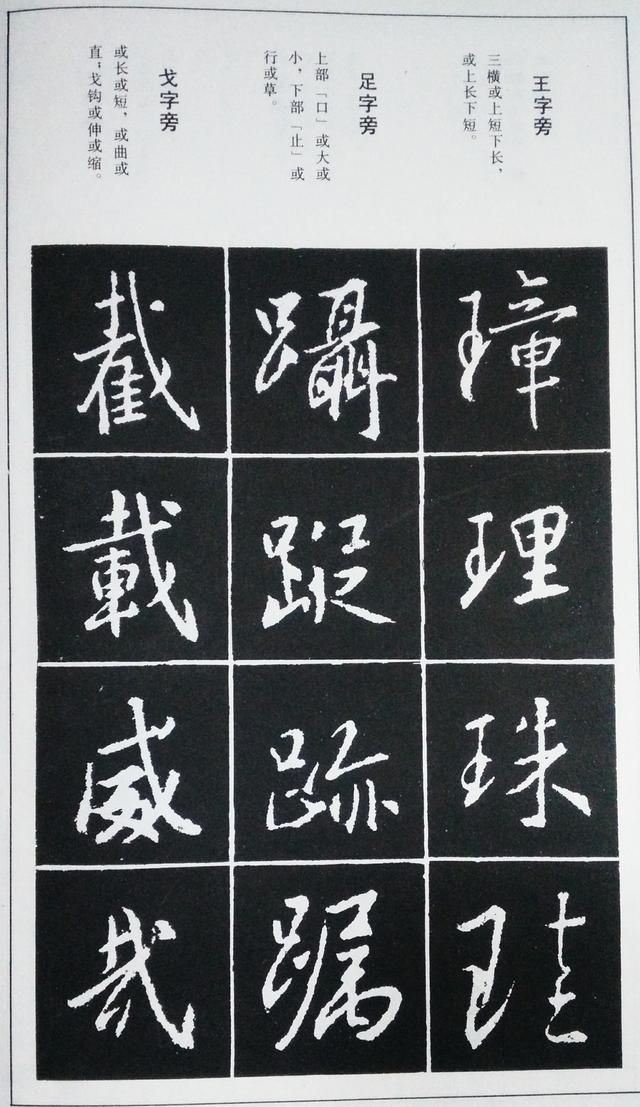 王字旁
三横或上短下长，
或上长下短。
璋
理
珠
珪
足字旁
上部「口」或大或
小，下部「止」或
行或草。
躡
蹤
跡
戈字旁
或长或短，或曲或
直；戈钩或伸或缩。
截
載
威
哉